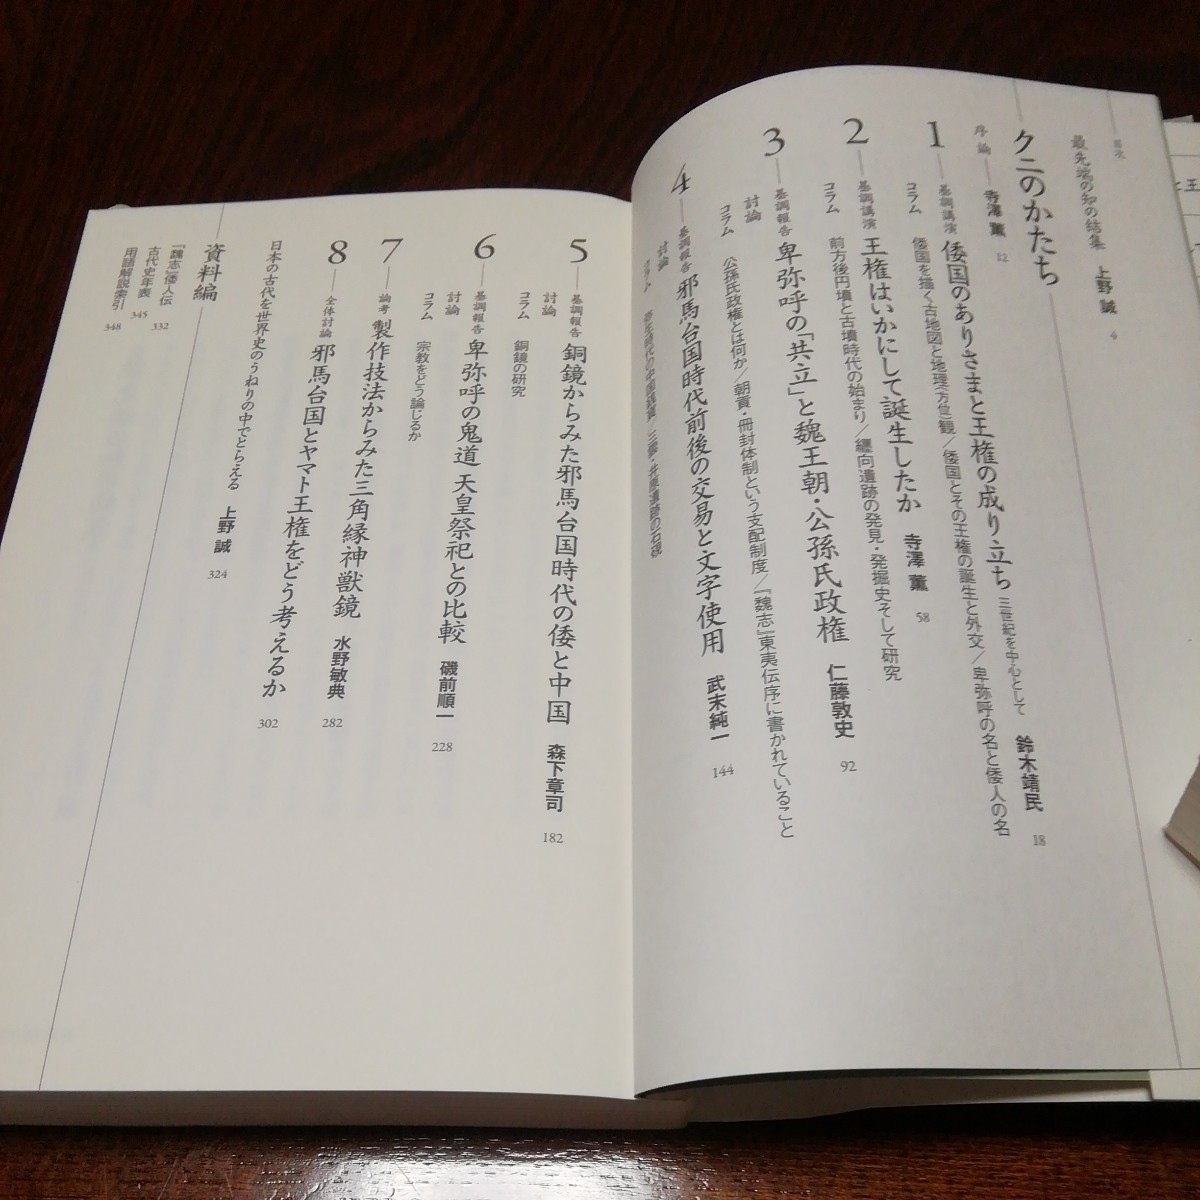 目次
最先端の知の結集 上野 誠 4
クニのかたち
序論 寺澤 薫 12
1 基調講演 倭国のありさまと王権の成り立ち 三世紀を中心として 鈴木靖民 18
コラム 倭国を描く古地図と地理(方位)観/倭国とその王権の誕生と外交/卑弥呼の名と倭人の名
2 基調講演 王権はいかにして誕生したか 寺澤 薫 58
コラム 前方後円墳と古墳時代の始まり/纒向遺跡の発見・発掘史そして研究
3 基調報告 卑弥呼の「共立」と魏王朝・公孫氏政権 仁藤敦史 92
討論
コラム 公孫氏政権とは何か/朝貢・冊封体制という支配制度/『魏志』東夷伝序に書かれていること
4 基調報告 邪馬台国時代前後の交易と文字使用 武末純一 144
討論
コラム 弥生時代の中国銭貨/三雲・井原遺跡の石硯
5 基調報告 銅鏡からみた邪馬台国時代の倭と中国 森下章司 182
討論
コラム 銅鏡の研究
6 基調報告 卑弥呼の鬼道 天皇祭祀との比較 磯前順一 228
討論
コラム 宗教をどう論じるか
7 論考 製作技法からみた三角縁神獣鏡 水野敏典 282
8 全体討論 邪馬台国とヤマト王権をどう考えるか 302
日本の古代を世界史のうねりの中でとらえる 上野 誠 324
資料編
『魏志』倭人伝 332
古代史年表 345
用語解説索引 348